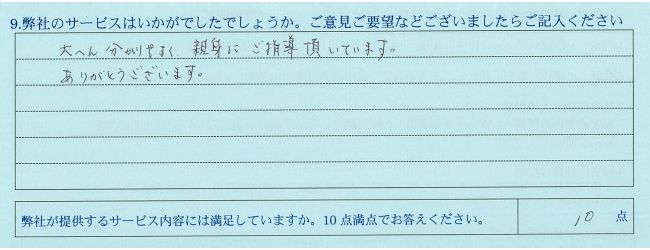 9.弊社のサービスはいかがでしたでしょうか。ご意見ご要望などございましたらご記入ください
大へん分かりやすく、親身にご指導頂いています。
ありがとうございます。
弊社が提供するサービス内容には満足していますか。10点満点でお答えください。 10 点